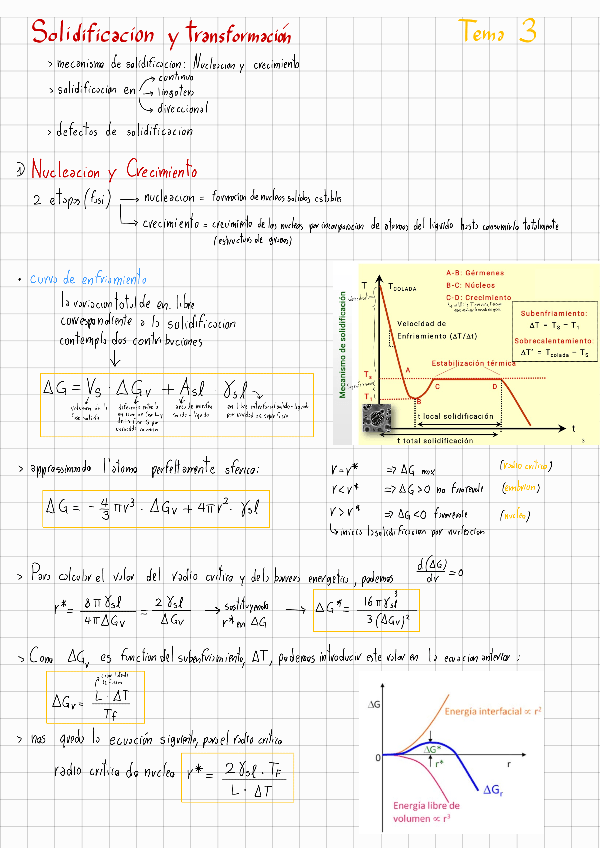 Solidificacion y transformación Tema 3
> mecanismo de solidificacion: Nucleacion y crecimiento
> solidificacion en → continuo
→ lingotera
→ direccional
> defectos de solidificacion
1) Nucleacion y Crecimiento
2 etapas (fasi) → nucleacion = formacion de nucleos solidos estables
→ crecimiento = crecimiento de los nucleos por incorporacion de atomos del liquido hasta consumirlo totalmente
(estructura de granos)
• curva de enfriamiento
la variacion total de en. libre
correspondiente a la solidificacion
contempla dos contribuciones
ΔG = Vs · ΔGv + Asl · γsl
Mecanismo de solidificación
T
TCOLADA
A-B: Gérmenes
B-C: Núcleos
C-D: Crecimiento
Velocidad de
Enfriamiento (ΔT/Δt)
Subenfriamiento:
ΔT = Ts - T1
Sobrecalentamiento
ΔT' = Tcolada - Ts
Estabilización térmica
A
Ts
T1
B
C
D
t local solidificación
t total solidificación
t
> approssimando l'atomo perfettamente sferico:
ΔG = - 4/3 πr³ · ΔGv + 4πr² · γsl
r = r* => ΔG max (radio critico)
r < r* => ΔG > 0 no favorevole (embrion)
r > r* => ΔG < 0 favorevole (nucleo)
↳ inicia la solidificacion por nucleacion
> Para calcular el valor del radio critico y della barrera energetica, podemos d(ΔG)/dr = 0
r* = 8πγsl / 4πΔGv = 2γsl / ΔGv → sostituyendo r* en ΔG → ΔG* = 16πγsl³ / 3(ΔGv)²
> Como ΔGv es function del subenfriamiento, ΔT, podemos introducir este valor en la ecuacion anterior:
ΔGv = L · ΔT / Tf
> nos queda la ecuación siguiente, para el radio critico
radio critico de nucleo r* = 2γsl · TF / L · ΔT
ΔG
Energía interfacial ∝ r²
0
ΔG*
r*
r
ΔGr
Energía libre de
volumen ∝ r³